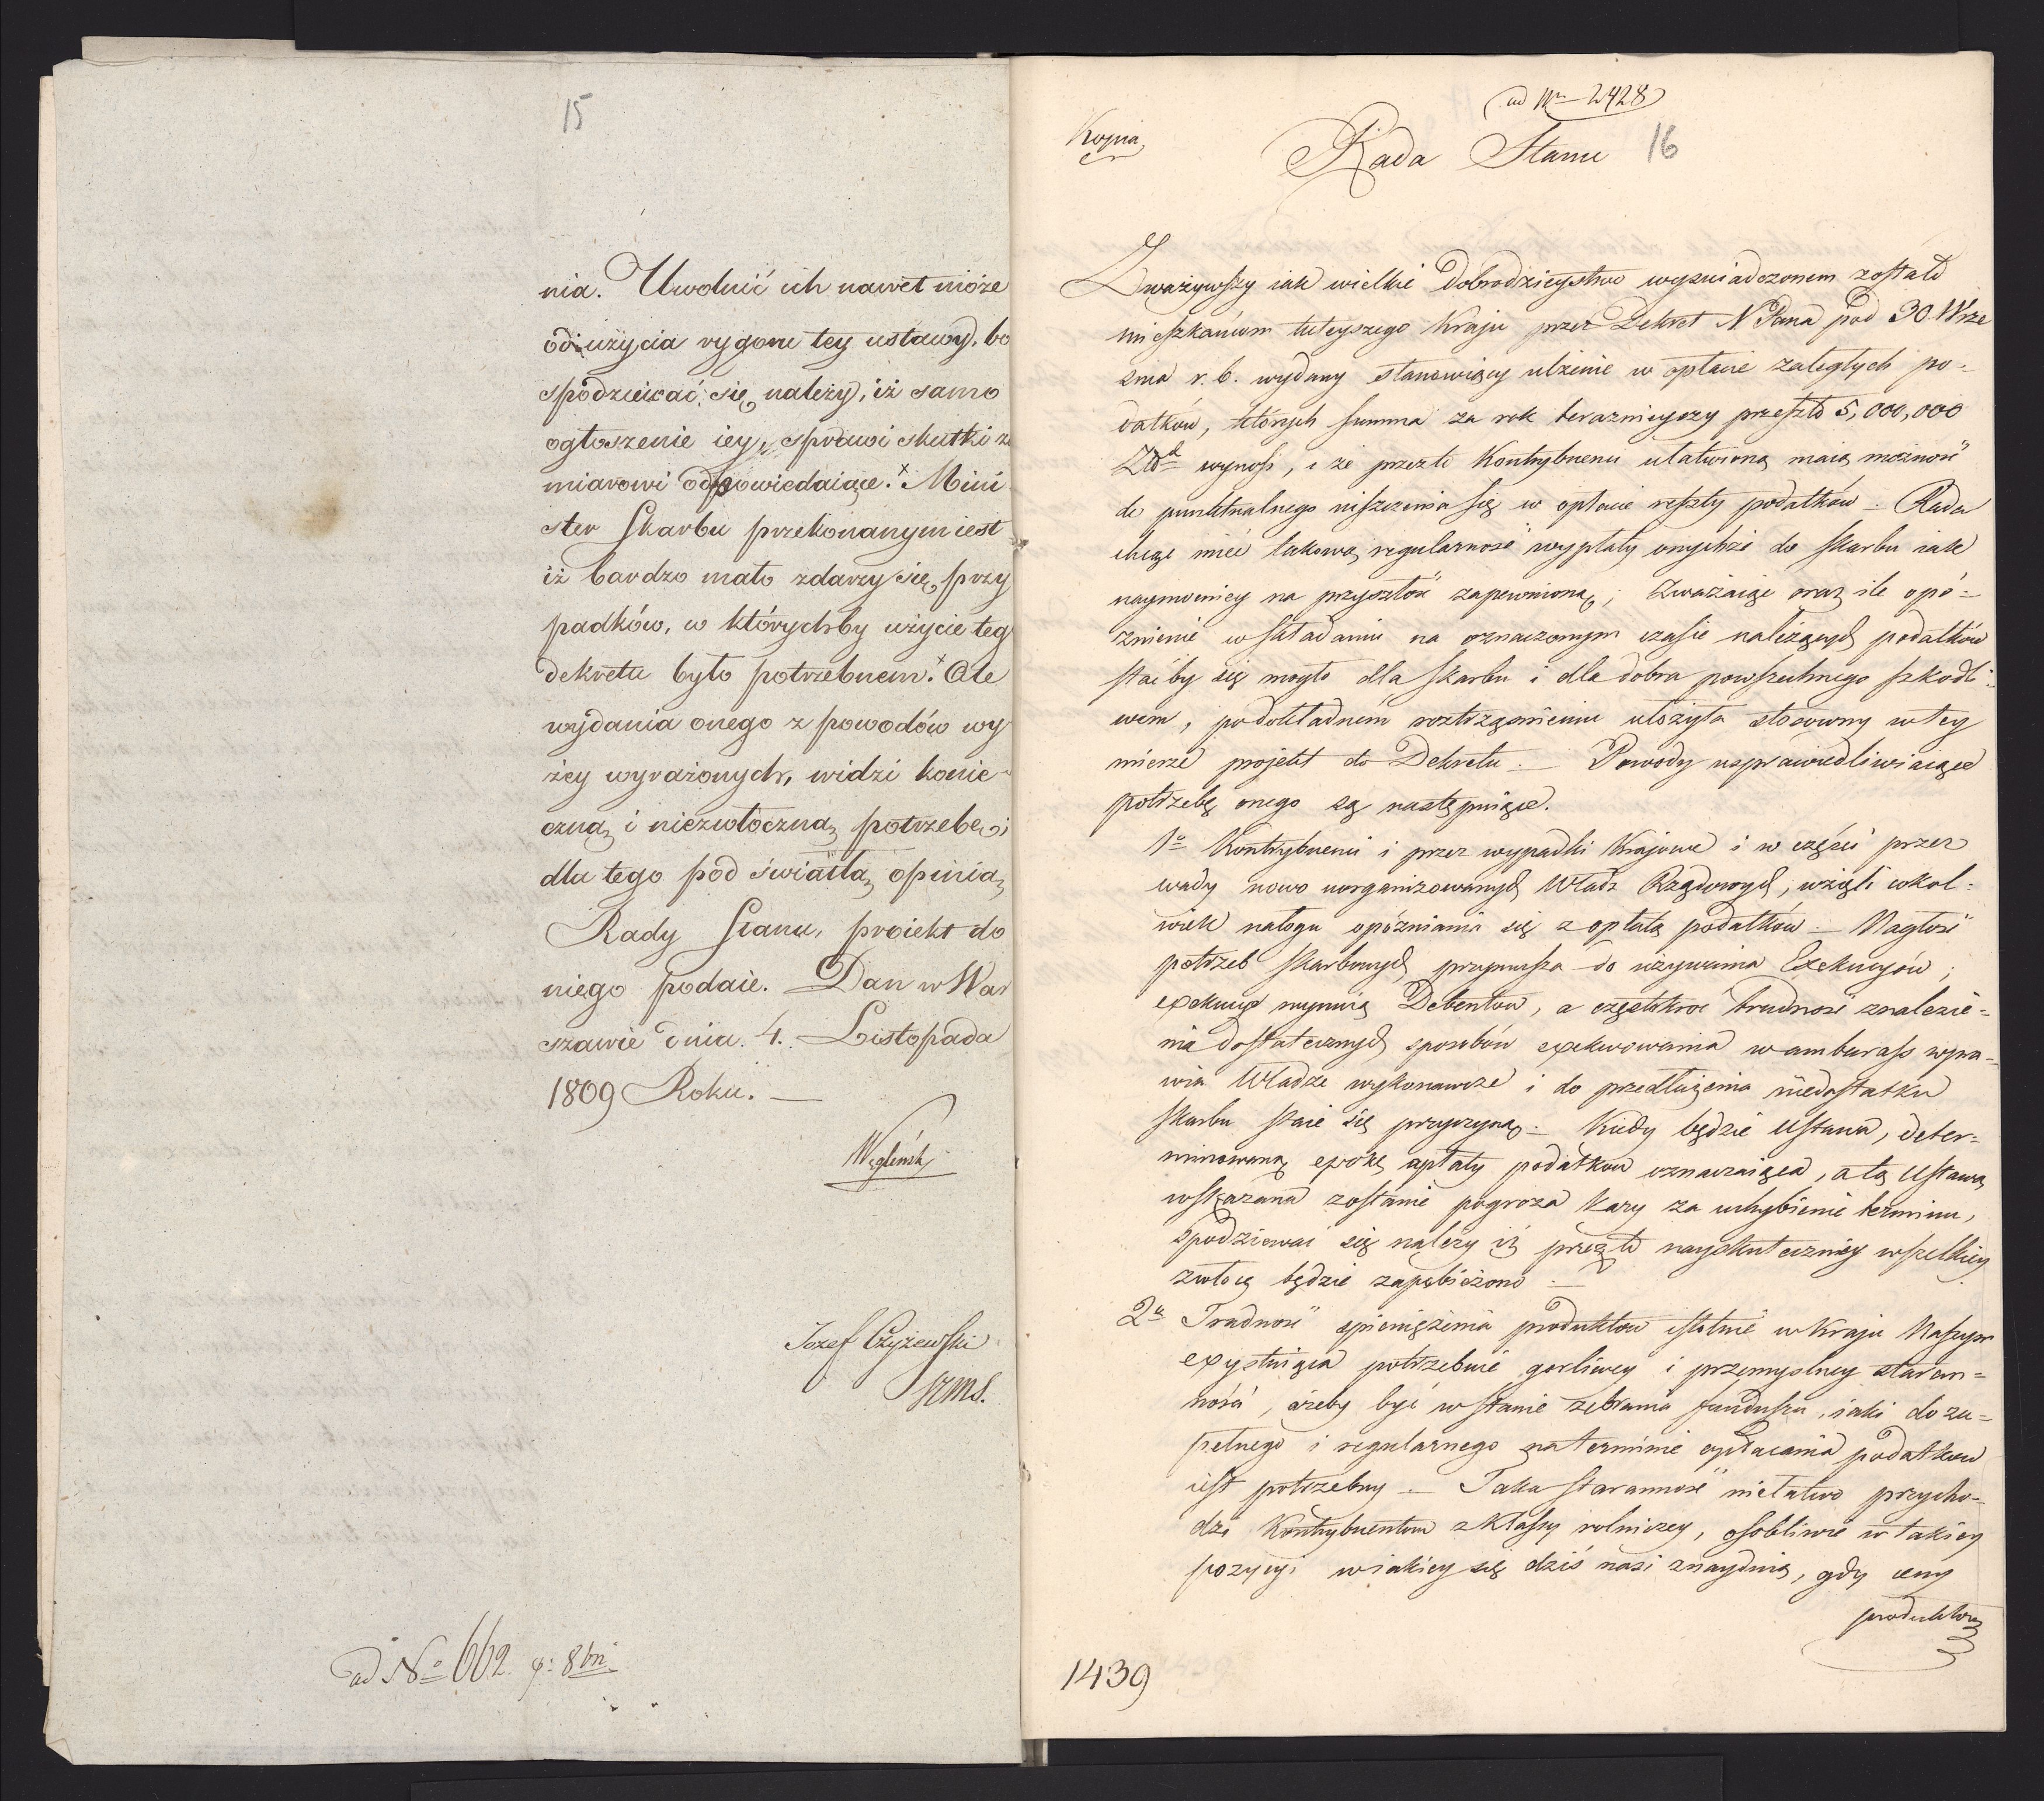 15
nia. Uwolnić ich nawet może
od użycia rygoru tey ustawy, bo
spodziewać się należy, iż samo
ogłoszenie iey, sprawi skutki za
miarowi odpowiedaiące. Mini
ster Skarbu przekonanym iest
iż bardzo mało zdarzy się przy
padków, w którychby użycie teg
dekretu było potrzebnem. Ale
wydania onego z powodów wy
żey wyrażonych, widzi konie-
czną i niezwłoczną potrzebę i
dla tego pod światłą opinią
Rady Stanu, proiekt do
niego podaie. Dan w War
szawie dnia 4. Listopada
1809 Roku. —
Węgleński
Jozef Czyżewski
szms.
ad No 662. 8bri
ad Nr 2428
Kopia
Rada Stanu 16
Zważywszy iak wielkie Dobrodzieystwo wyświadczonem zostało
mieszkańcom tuteyszego Kraju przez Dekret N Pana pod 30. Wrze
śnia r. b. wydany stanowiący ulżenie w opłacie zaległych po-
datków, których summa za rok teraznieyszy przeszło 5,000,000
Złł wynosi, i że przezto Kontrybuenci ułatwioną maią możność
do punktualnego uiszczenia się w opłacie reszty podatków — Rada
chcąc mieć takową regularność wypłaty onychże do skarbu iak
naymocniey na przyszłość zapewnioną; Zważaiąc oraz ile opó-
źnienie w składaniu na oznaczonym czasie należących podatków
staćby się mogło dla skarbu i dla dobra powszechnego szkodli-
wem, po dokładném roztrząśnieniu ułożyła stosowny w tey
mierze projekt do Dekretu — Powody usprawiedliwiaiące
potrzebę onego są następuiące.
1o Kontrybuenci i przez wypadki Krajowe i w części przez
wady nowo uorganizowanych Władz Rządowych, wzięli cokol-
wiek nałogu opóźniania się z opłatą podatków — Nagłość
potrzeb skarbowych przymusza do używania Exekucyów;
exekucye Debentów, a częstokroć trudność znalezie-
nia dostatecznych sposobów exekwowania w ambaras wpra-
wia Władze wykonawcze i do przedłużenia niedostatku
skarbu staie się przyczyną — Kiedy będzie Ustawa, deter-
minowaną epokę opłaty podatków oznaczaiąca, a tą Ustawą
wskazana zostanie pogroza kary za uchybienie terminu,
spodziewać się należy iż przezto nayskuteczniey wszelkiey
zwłocę będzie zapobieżono —
2o Trudność spieniężenia produktów istotnie w Kraju Naszym
exystuiąca potrzebuie gorliwey i przemyslney staran-
ności, ażeby być w stanie zebrania funduszu, iaki do zu-
pełnego i regularnego na terminie opłacania podatków
iest potrzebny — Taka staranność niełatwo przycho-
dzi Kontrybuentom z Klassy rolniczey, osobliwie w takiey
pozycyi w iakiey się dziś nasi znayduią, gdy ceny
produktów
1439